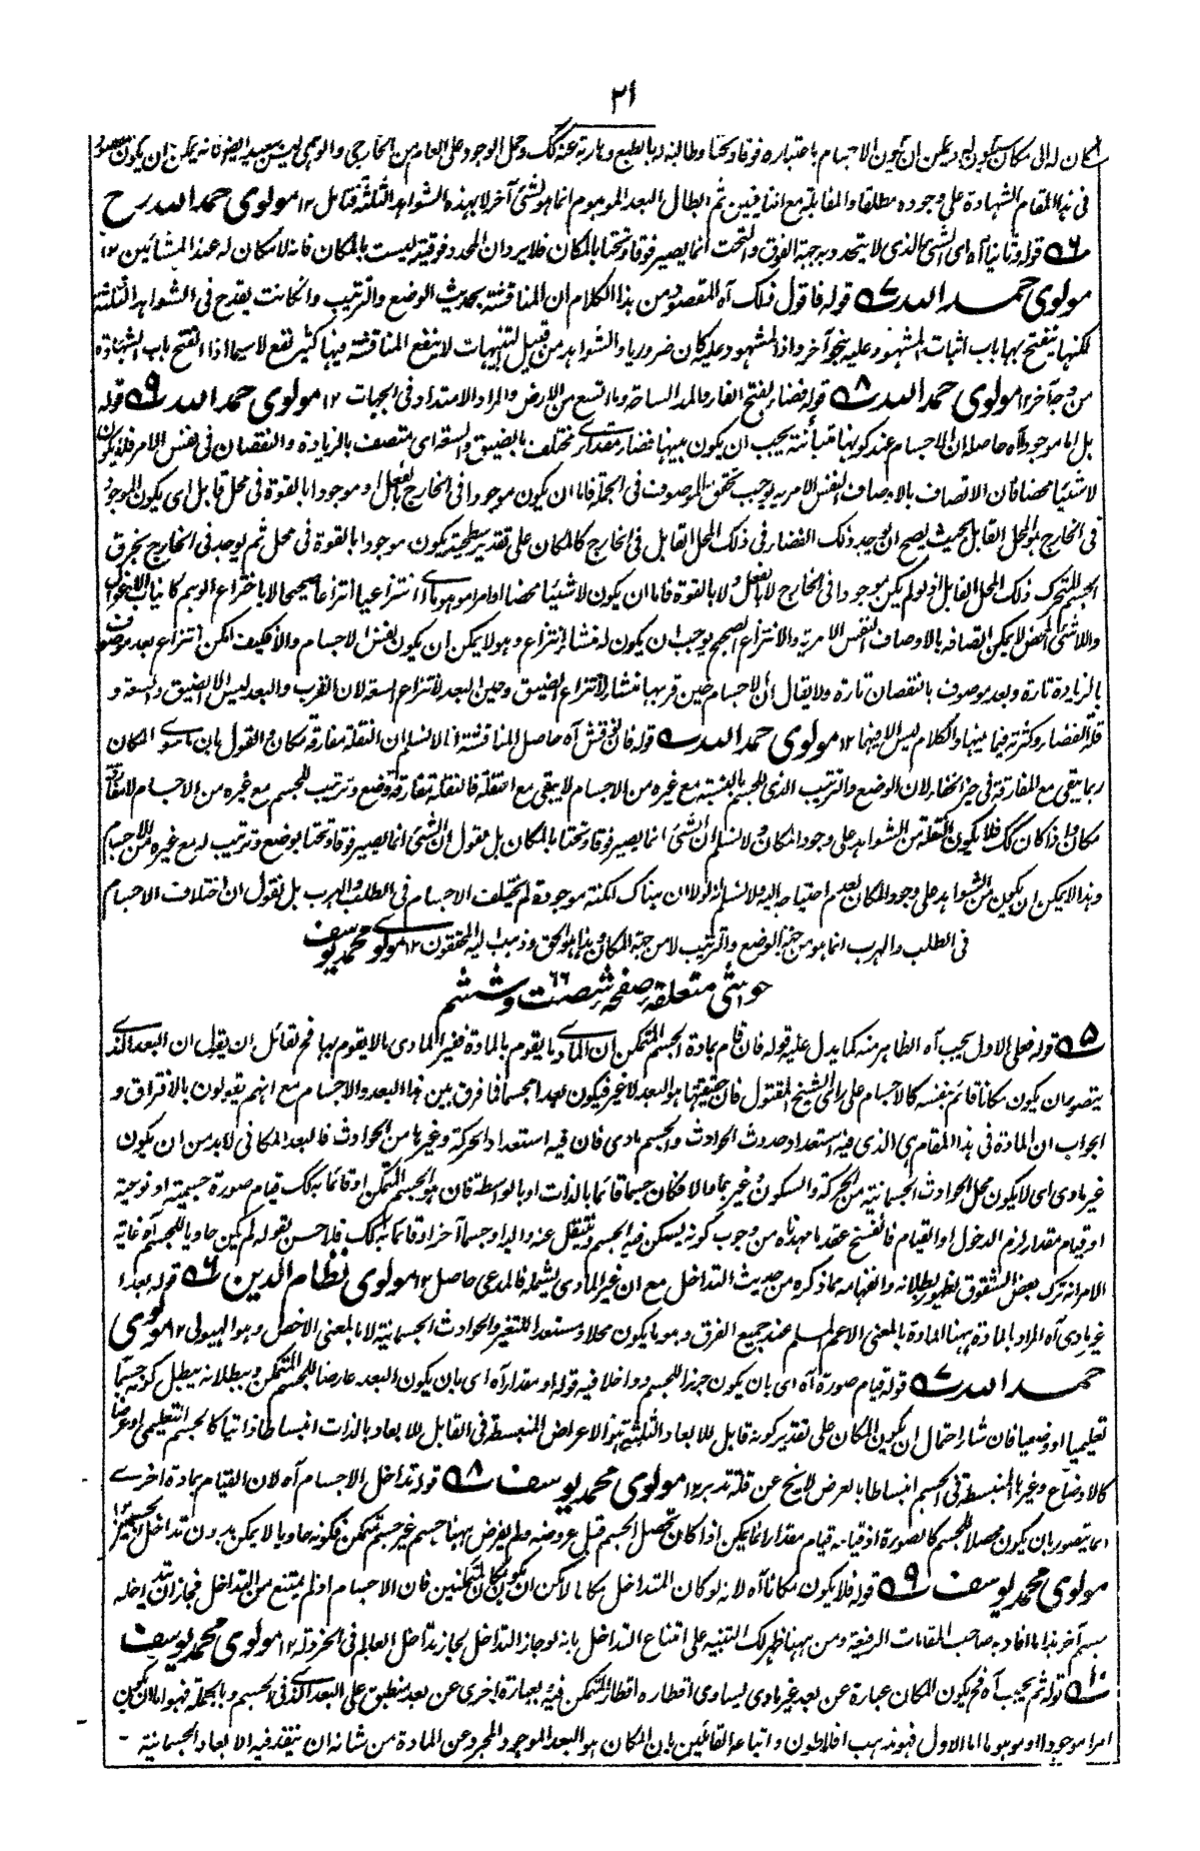 ٣١
فى هذا المقام الشهادة على وجوده مطلقا والمقابلة مع النافيين ثم ابطال البعد الموهوم انما هو لشئ آخر لا بهذه الشواهد الثلثة فتامل ١٢ مولوى حمد الله رح
٦ قوله وثانيا آه اى الشئ الذى لا يتحدد به جهة الفوق والتحت انما يصير فوقا وتحتا بالمكان فلا يرد ان المحدد فوقيته ليست بالمكان فانه لا مكان له عند المشائين ١٢
مولوى حمد الله ٧ قوله فاقول ذلك آه المقصود من هذا الكلام ان المناقشة بحديث الوضع والترتيب وان كانت يقدح فى الشواهد الثلثة
لكنها ينفتح بها باب اثبات المشهود عليه بنحو آخر واذا المشهود عليه كان ضروريا والشواهد من قبيل التنبيهات لا ينفع المناقشة فيها كثير نفع لا سيما اذا انفتح باب الشهادة
من وجه آخر ١٢ مولوى حمد الله ٨ قوله فضاء بفتح الفاء والمد الساحة وما اتسع من الارض والمراد الامتداد فى الجهات ١٢ مولوى حمد الله ٩ قوله
بل اما موجود آه حاصله ان الاجسام عند كونها متبائنة يجب ان يكون بينها فضاء مقدارى مختلف بالضيق والسعة اى متصف بالزيادة والنقصان فى نفس الامر فلا يكون
لا شيئا محضا فان الاتصاف بالاوصاف النفس الامرية يوجب تحقق الموصوف فى الجملة فاما ان يكون موجودا فى الخارج بالفعل او موجودا بالقوة فى محل قابل اى يكون الموجود
فى الخارج هو المحل القابل بحيث يصح ان يوجد ذلك الفضاء فى ذلك المحل القابل فى الخارج كالمكان على تقدير سطحيته يكون موجودا بالقوة فى محل ثم يوجد فى الخارج بخرق
الجسم المتحرك ذلك المحل القابل اذ لو لم يكن موجودا فى الخارج لا بالفعل ولا بالقوة فاما ان يكون لا شيئا محضا او امرا موهوما اى انتزاعيا انتزاعا صحيحا لا باختراع الوهم كانياب الاغوال
واللاشئ المحض لا يمكن اتصافه بالاوصاف النفس الامرية والانتزاع الصحيح يوجب ان يكون له منشاء انتزاع وهو لا يمكن ان يكون نفس الاجسام والا فكيف امكن انتزاع بعد موصوف
بالزيادة تارة وبعد موصوف بالنقصان تارة ولا يقال ان الاجسام حين قربها منشاء لانتزاع الضيق وحين البعد لانتزاع السعة لان القرب والبعد ليس الا الضيق والسعة و
قلة الفضاء وكثرته فيما بينها والكلام ليس الا فيهما ١٢ مولوى حمد الله قوله فان نوقش آه حاصل المناقشة انا لا نسلم ان النقلة مفارقة مكان والقول بان ما سوى المكان
ربما يبقى مع المفارقة فى حيز الخفاء لان الوضع والترتيب الذى للجسم بالنسبة مع غيره من الاجسام لا يبقى مع النقلة فالنقلة مفارقة وضع وترتيب للجسم مع غيره من الاجسام لا مفارقة
مكان واذا كان كك فلا يكون النقلة من الشواهد على وجود المكان ولا نسلم ان الشئ انما يصير فوقا وتحتا بالمكان بل نقول ان الشئ انما يصير فوقا وتحتا بوضع وترتيب له مع غيره من الاجسام
وهذا لا يمكن ان يكون من الشواهد على وجود المكان لعدم احتياجه اليه ولا نسلم انه لولا ان هناك امكنة موجودة لم يختلف الاجسام فى الطلب والهرب بل نقول ان اختلاف الاجسام
فى الطلب والهرب انما هو من جهة الوضع والترتيب لا من جهة المكان وهذا هو الحق وذهب اليه المحققون ١٢ مولوى محمد يوسف
حواشى متعلقہ صفحہ شصت وششم ٦٦
٥ قوله فعلى الاول يجب آه الظاهر منه كما يدل عليه قوله فان قام بمادة الجسم المتمكن ان المادى ما يقوم بالمادة فغير المادى ما لا يقوم بها فح لقائل ان يقول ان البعد الذى
يتصور ان يكون مكانا قائم بنفسه كالاجسام على راى الشيخ المقتول فان حقيقتها هو البعد لا غير فيكون بعدا مجسما فما فرق بين هذا البعد والاجسام مع انهم يقولون بالافتراق و
الجواب ان المادة فى هذا المقام هى الذى فيه استعداد حدوث الحوادث والجسم مادى فان فيه استعداد الحركة وغيرها من الحوادث فالبعد المكانى لا بد من ان يكون
غير مادى اى لا يكون محل الحوادث الجسمانية من الحركة والسكون وغيرهما والا فكان جسما قائما بالذات او بالواسطة فان هو الجسم المتمكن او قائما به كك قيام صورة جسمية او نوعية
او قيام مقدار لزم الدخول او القيام فانفسخ عقد ما مهدناه من وجوب كونه يسكن فيه الجسم وينتقل عنه واليه او جسما آخر او قائما به كك فلا حسن لقوله لم يكن حاويا للجسم آه غاية
الامر انه ترك بعض الشقوق لظهور بطلانه وانفهامه مما ذكره من حديث التداخل مع ان غير المادى يشمله فالمدعى حاصل ١٢ مولوى نظام الدين ٦ قوله بعدا
غير مادى آه المراد بالمادة ههنا المادة بالمعنى الاعم المسلم عند جميع الفرق وهو ما يكون محلا ومستعدا للتغير والحوادث الجسمانية لا بالمعنى الاخص وهو الهيولى ١٢ مولوى
حمد الله ٧ قوله قيام صورة آه اى بان يكون جزءا للجسم وداخلا فيه قوله او مقدار آه اى بان يكون البعد عارضا للجسم المتمكن وببطلانه يبطل كونه جسما
تعليميا او وضعيا فان شاء احتمال ان يكون المكان على تقدير كونه قابل للابعاد الثلثة هو الاعراض المنبسطة فى القابل للابعاد بالذات انبساطا ذاتيا كالجسم التعليمى او عرضا
كالاوضاع وغيرها المنبسطة فى الجسم انبساطا بالعرض لا ينح عن قلة تدبر ١٢ مولوى محمد يوسف ٨ قوله تداخل الاجسام آه لان القيام بمادة اخرى
انما يتصور بان يكون محصلا للجسم كالصورة او قيامه قيام مقدار انما يمكن اذا كان تحصل الجسم قبل عروضه ولم يفرض ههنا جسم غير جسم متمكن فكونه حاويا لا يمكن بدون تداخل الجسمين ١٢
مولوى محمد يوسف ٩ قوله فلا يكون مكانا آه لانه لو كان المتداخل مكانا لامكن ان يكون مكان المتمكنين فان الاجسام اذ لم يمتنع من التداخل فجاز ان يتداخله
جسم آخر هذا ما افاد به صاحب المقامات الرفيعة ومن ههنا ظهر لك التنبيه على امتناع التداخل بانه لو جاز التداخل لجاز تداخل العالم فى الخردلة ١٢ مولوى محمد يوسف
١٠ قوله ثم يجب آه فح يكون المكان عبارة عن بعد غير مادى يساوى اقطاره اقطار المتمكن فيه وبعبارة اخرى عن بعد منطبق على البعد الذى فى الجسم وبالجملة فهو اما ان يكون
امرا موجودا او موهوما اما الاول فهو مذهب افلاطون واتباعه القائلين بان المكان هو البعد الموجود المجرد عن المادة من شانه ان ينفذ فيه الابعاد الجسمانية -